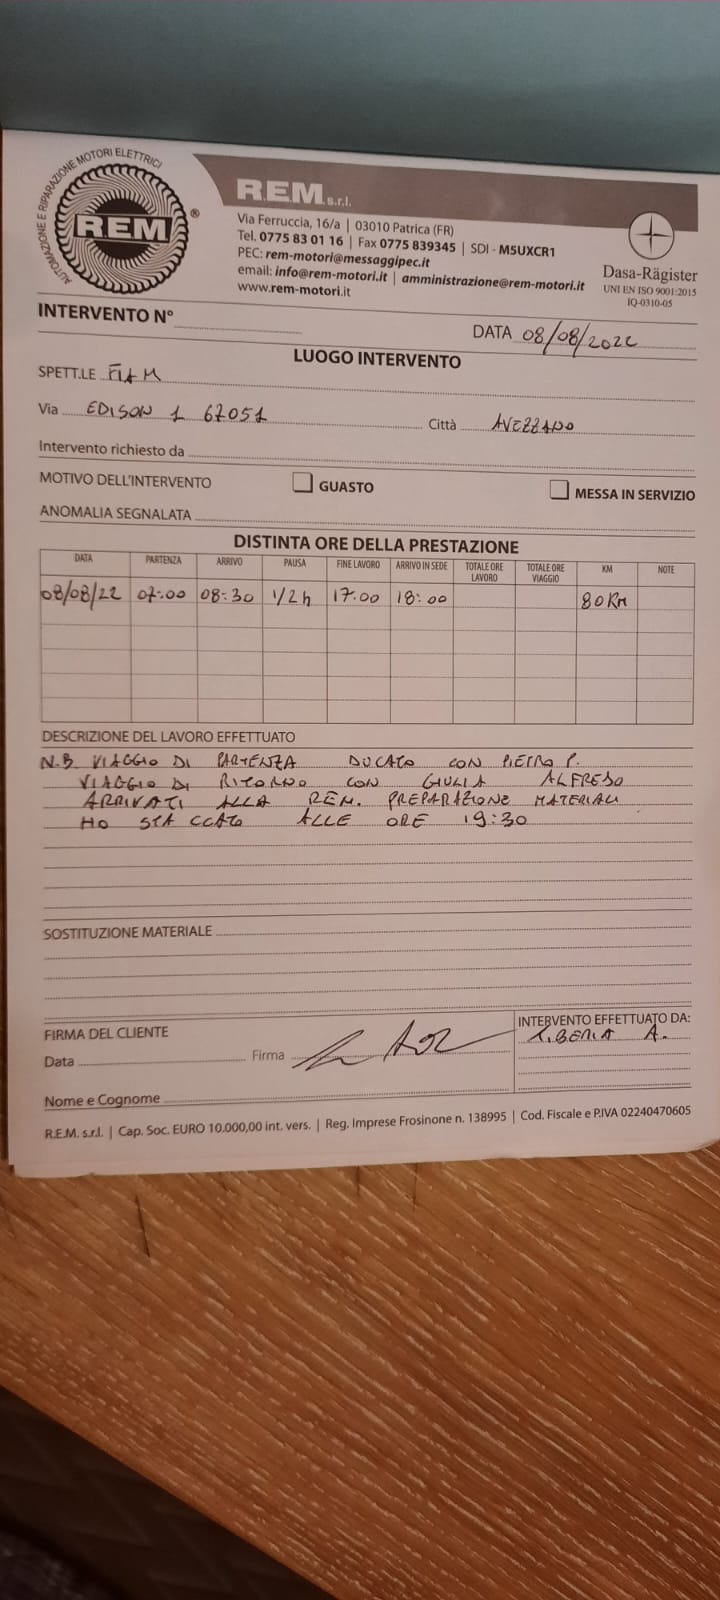 AUTOMAZIONE E RIPARAZIONE MOTORI ELETTRICI
REM
®
R.E.M. s.r.l.
Via Ferruccia, 16/a | 03010 Patrica (FR)
Tel. 0775 83 01 16 | Fax 0775 839345 | SDI - M5UXCR1
PEC: rem-motori@messaggipec.it
email: info@rem-motori.it | amministrazione@rem-motori.it
www.rem-motori.it
Dasa-Rägister
UNI EN ISO 9001:2015
IQ-0310-05
INTERVENTO N°
DATA 08/08/2022
LUOGO INTERVENTO
SPETT.LE FIAM
Via EDISON 1 67051 Città AVEZZANO
Intervento richiesto da
MOTIVO DELL'INTERVENTO GUASTO MESSA IN SERVIZIO
ANOMALIA SEGNALATA
DISTINTA ORE DELLA PRESTAZIONE
DATA PARTENZA ARRIVO PAUSA FINE LAVORO ARRIVO IN SEDE TOTALE ORE LAVORO TOTALE ORE VIAGGIO KM NOTE
08/08/22 07:00 08:30 1/2 h 17.00 18:00 80 KM
DESCRIZIONE DEL LAVORO EFFETTUATO
N.B. VIAGGIO DI PARTENZA DUCATO CON PIETRO P.
VIAGGIO DI RITORNO CON GIULIA ALFREDO
ARRIVATI ALLA REM. PREPARAZIONE MATERIALI
HO STACCATO ALLE ORE 19:30
SOSTITUZIONE MATERIALE
FIRMA DEL CLIENTE
Data Firma
Nome e Cognome
INTERVENTO EFFETTUATO DA:
A.
R.E.M. s.r.l. | Cap. Soc. EURO 10.000,00 int. vers. | Reg. Imprese Frosinone n. 138995 | Cod. Fiscale e P.IVA 02240470605